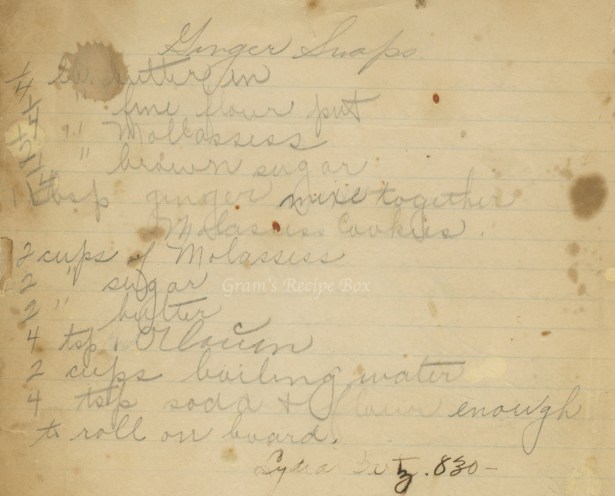 Ginger Snaps
1/4 lb. butter in
1/4 " fine flour put
1/2 " Mollassess
1/4 " brown sugar
1 tbsp ginger mixe together
Molassess Cookies.
2 cups of Molassess
2 " sugar
2 " butter
Gram's Recipe Box
4 tsp
2 cups boiling water
4 tsp soda + flour enough
to roll on board.
Lydia .830-